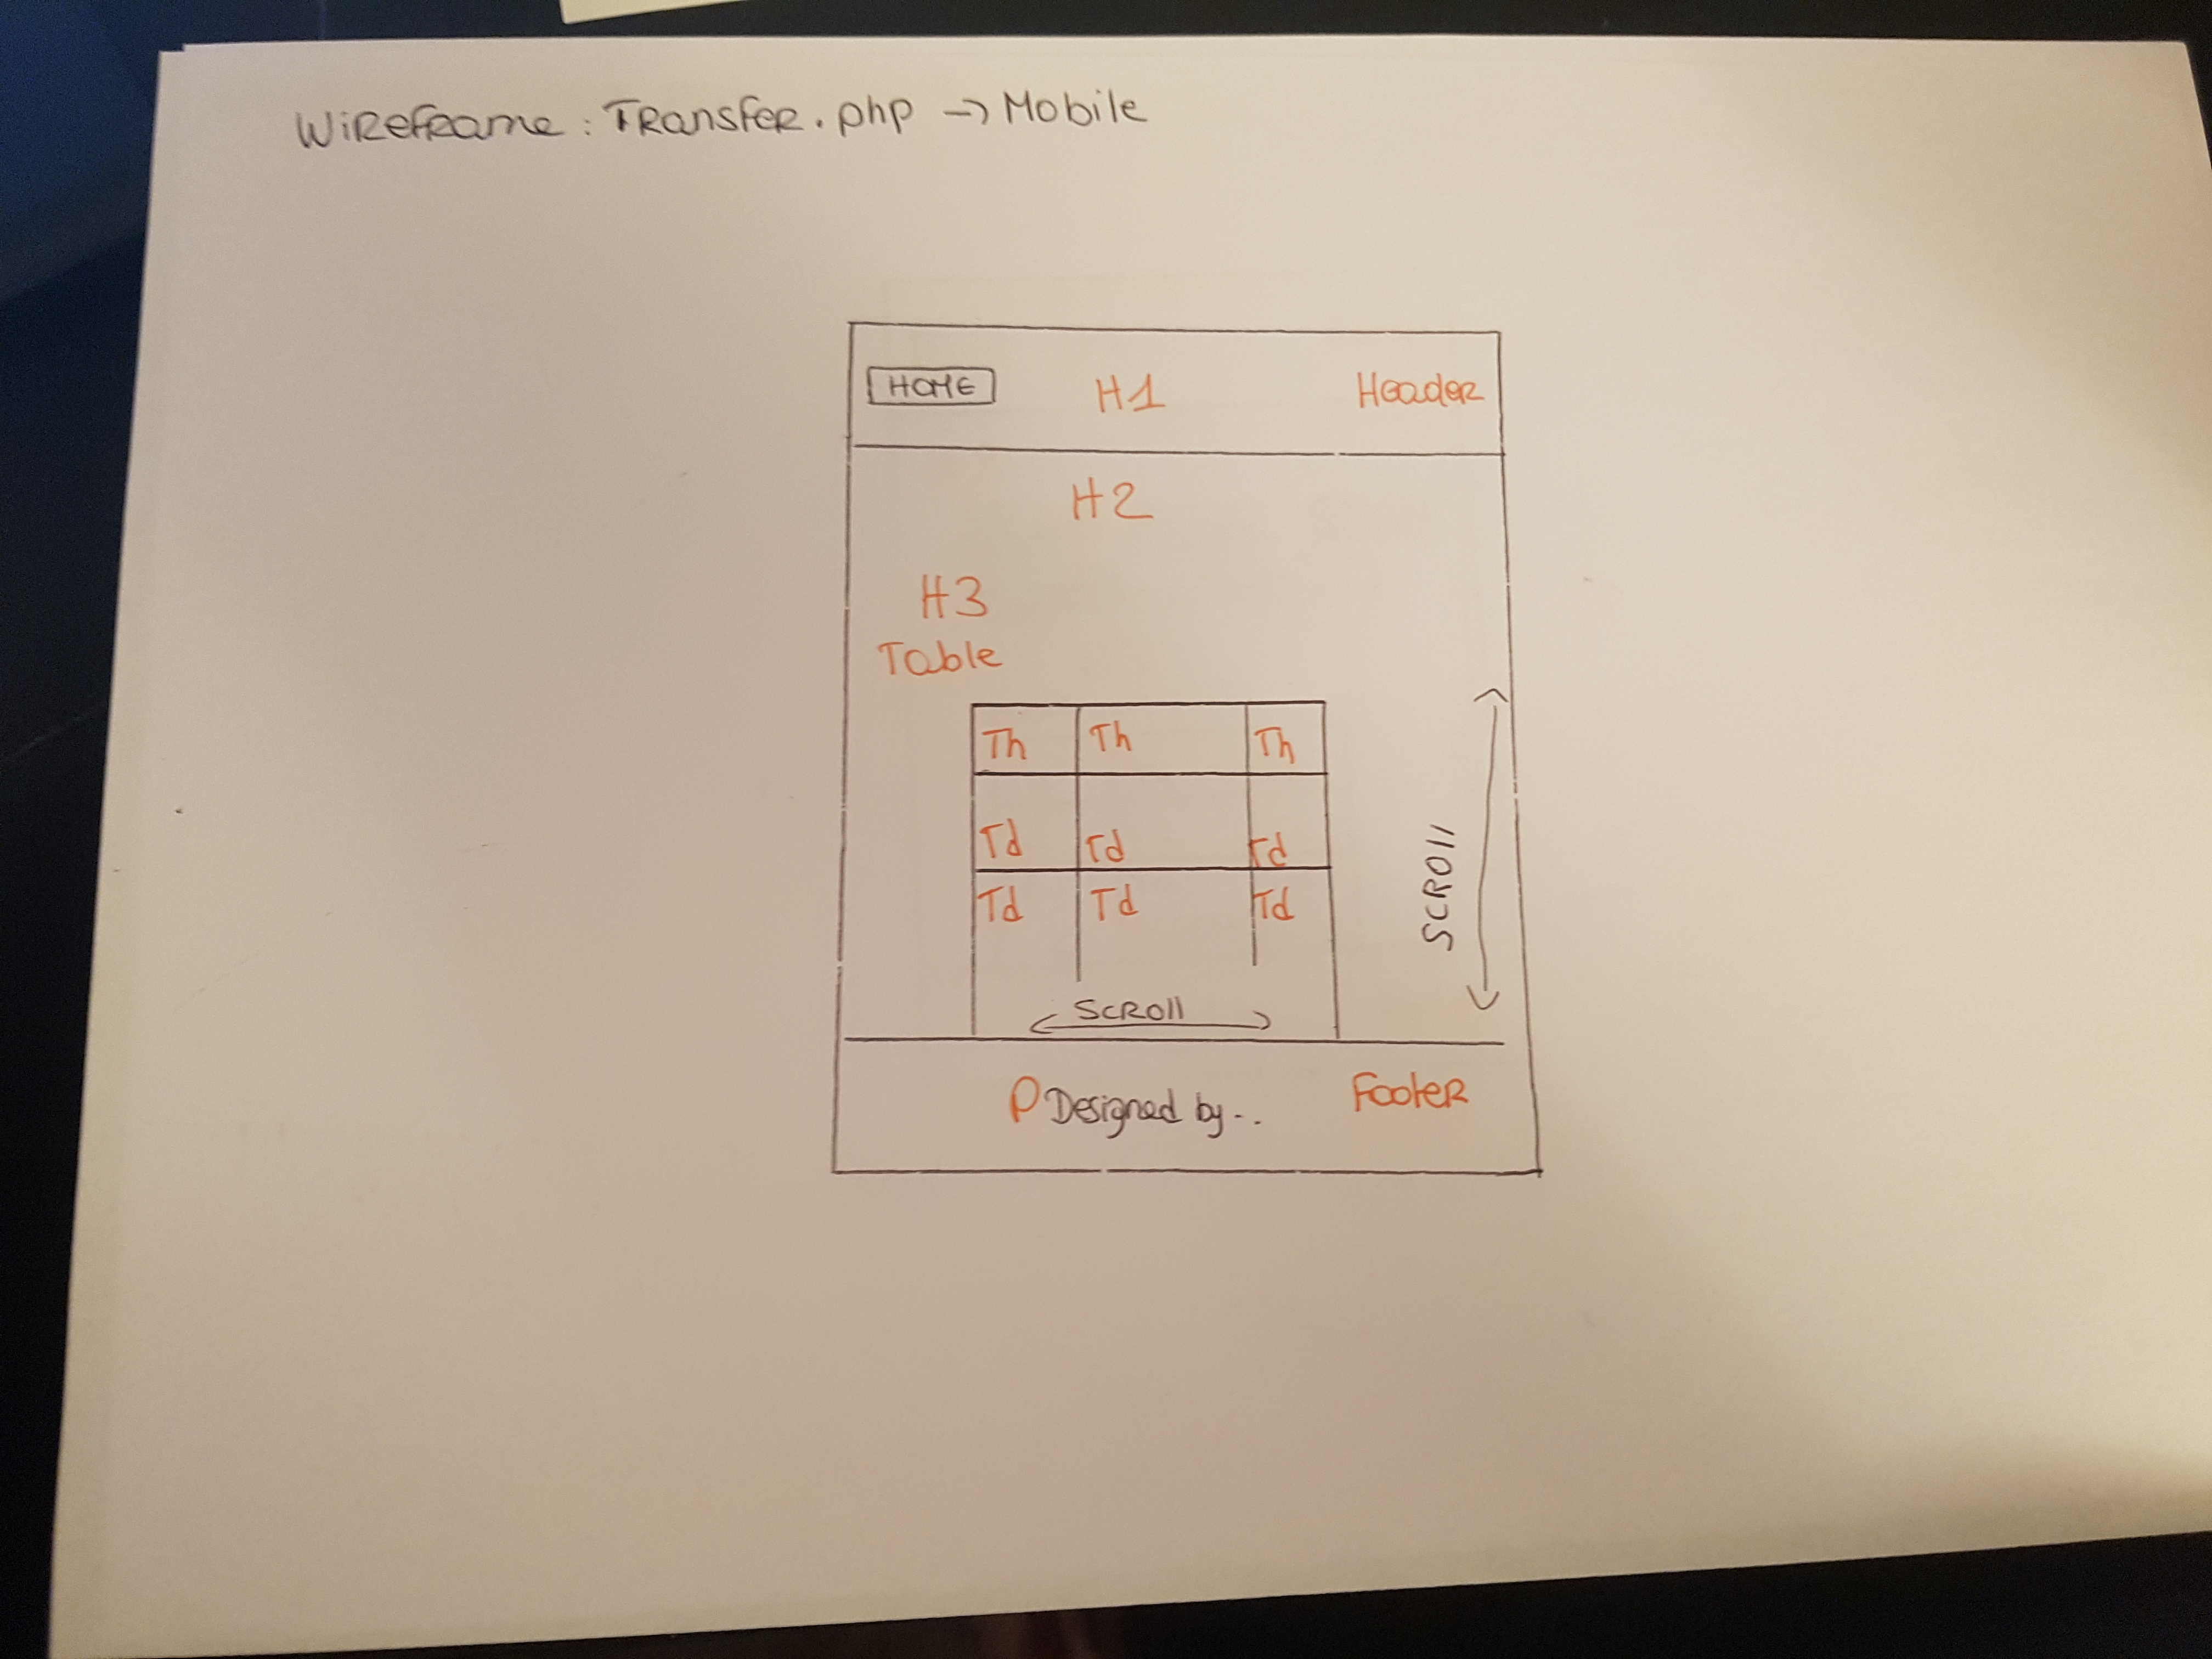 Wireframe: Transfer.php → Mobile
HOME H1 Header
H2
H3
Table
Th Th Th
Td Td Td
Td Td Td
SCROll
SCROll
P Designed by...
Footer